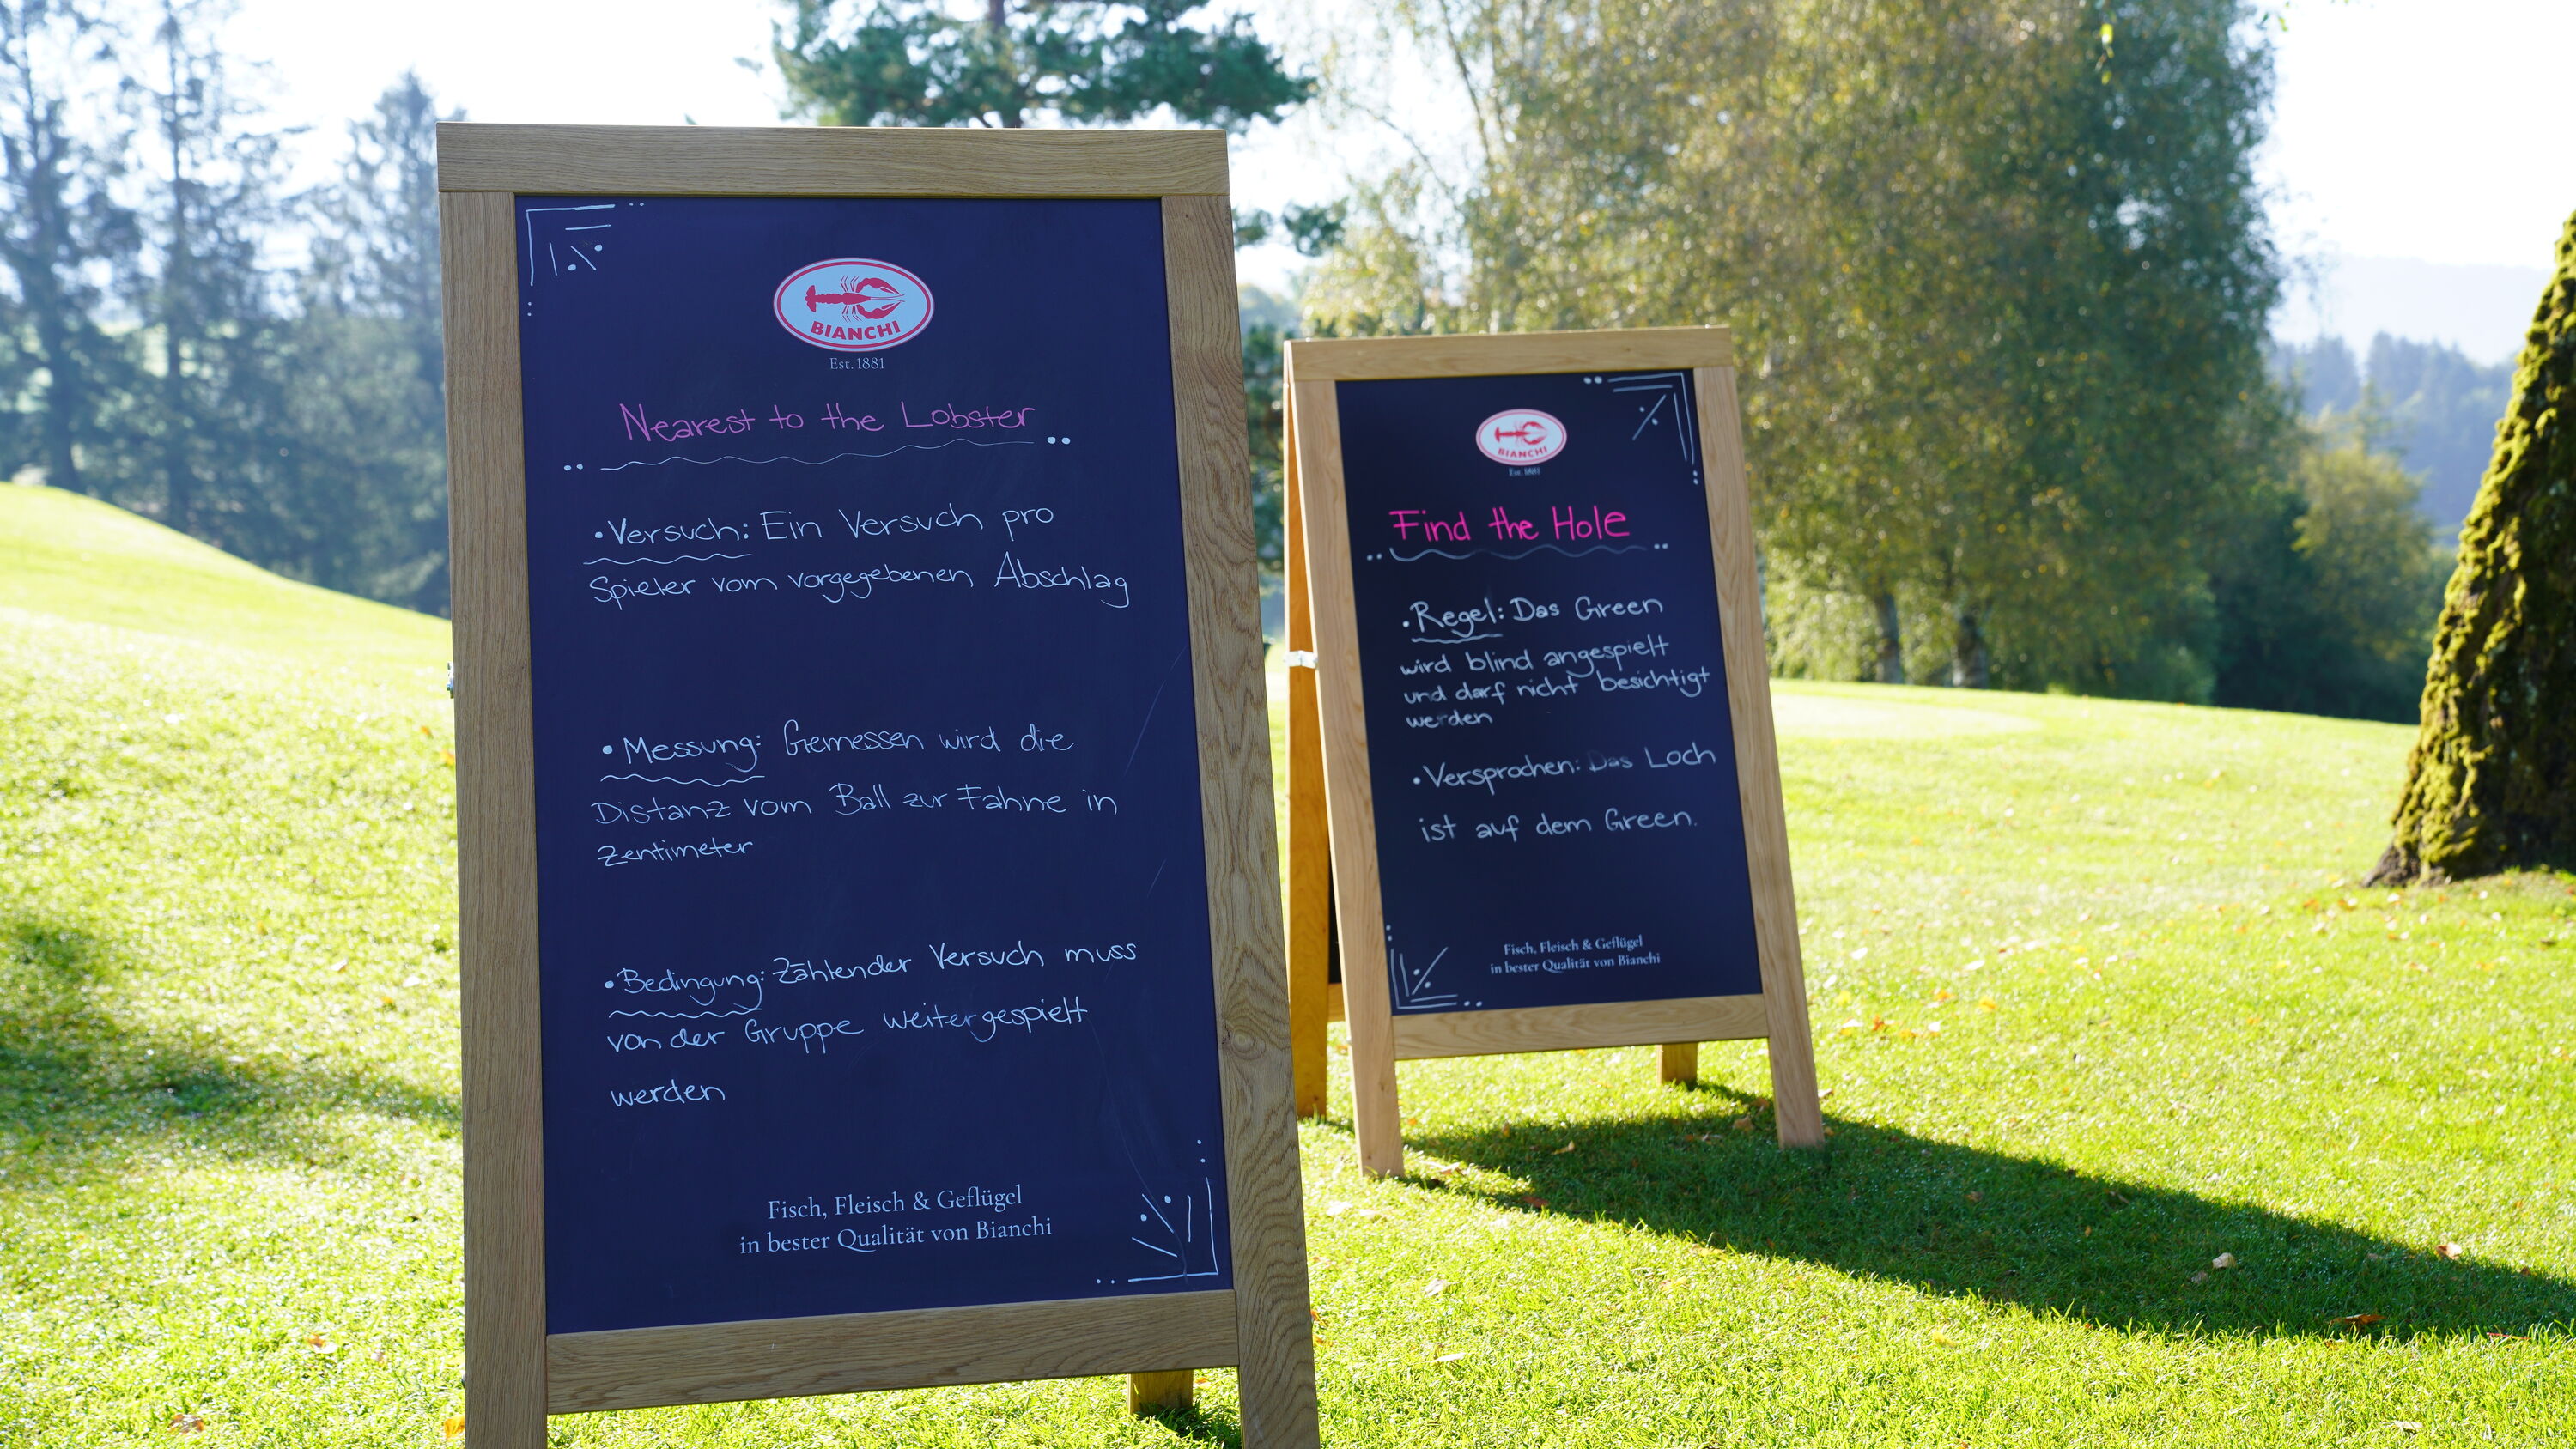 BIANCHI
Est. 1881
Nearest to the Lobster
• Versuch: Ein Versuch pro
Spieler vom vorgegebenen Abschlag
• Messung: Gemessen wird die
Distanz vom Ball zur Fahne in
Zentimeter
• Bedingung: Zählender Versuch muss
von der Gruppe weitergespielt
werden
Fisch, Fleisch & Geflügel
in bester Qualität von Bianchi
BIANCHI
Est. 1881
Find the Hole
• Regel: Das Green
wird blind angespielt
und darf nicht besichtigt
werden
• Versprochen: Das Loch
ist auf dem Green.
Fisch, Fleisch & Geflügel
in bester Qualität von Bianchi